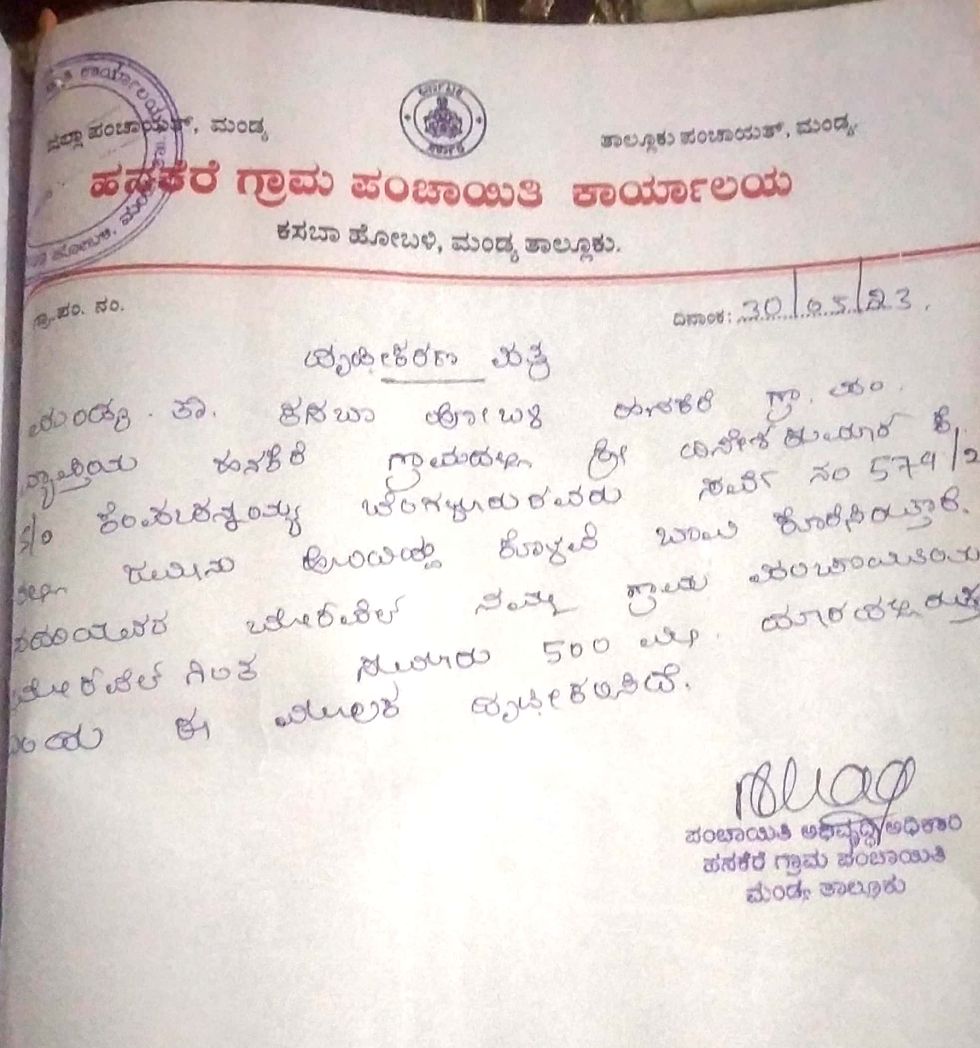 ಜಿಲ್ಲಾ ಪಂಚಾಯತ್, ಮಂಡ್ಯ
ತಾಲ್ಲೂಕು ಪಂಚಾಯತ್, ಮಂಡ್ಯ.
ಹನಕೆರೆ ಗ್ರಾಮ ಪಂಚಾಯಿತಿ ಕಾರ್ಯಾಲಯ
ಕಸಬಾ ಹೋಬಳಿ, ಮಂಡ್ಯ ತಾಲ್ಲೂಕು.
ಗ್ರಾ.ಪಂ. ನಂ.
ದಿನಾಂಕ: 30/05/23.
ದೃಢೀಕರಣ ಪತ್ರ
ಮಂಡ್ಯ. ತಾ. ಕಸಬಾ ಹೋಬಳಿ ಹನಕೆರೆ ಗ್ರಾ. ಪಂ.
ವ್ಯಾಪ್ತಿಯ ಹನಕೆರೆ ಗ್ರಾಮದಲ್ಲಿ ಶ್ರೀ ದಿನೇಶ್ ಕುಮಾರ್ ಕೆ.
s/o ಸರ್ವೆ ನಂ 574/2
ರಲ್ಲಿ ಜಮೀನು ಕೊಳವೆ ಬಾವಿ ಕೊರೆಸಿರುತ್ತಾರೆ.
ಸದರಿಯವರ ಬೋರ್‌ವೆಲ್ ನಮ್ಮ ಗ್ರಾಮ ಪಂಚಾಯಿತಿಯ
ಬೋರ್‌ವೆಲ್ ಗಿಂತ ಸುಮಾರು 500 ಮೀ. ದೂರದಲ್ಲಿರುತ್ತ
ದೆಯ ಈ ಮೂಲಕ ದೃಢೀಕರಿಸಿದೆ.
ಪಂಚಾಯಿತಿ ಅಭಿವೃದ್ಧಿ ಅಧಿಕಾರಿ
ಹನಕೆರೆ ಗ್ರಾಮ ಪಂಚಾಯಿತಿ
ಮಂಡ್ಯ ತಾಲ್ಲೂಕು